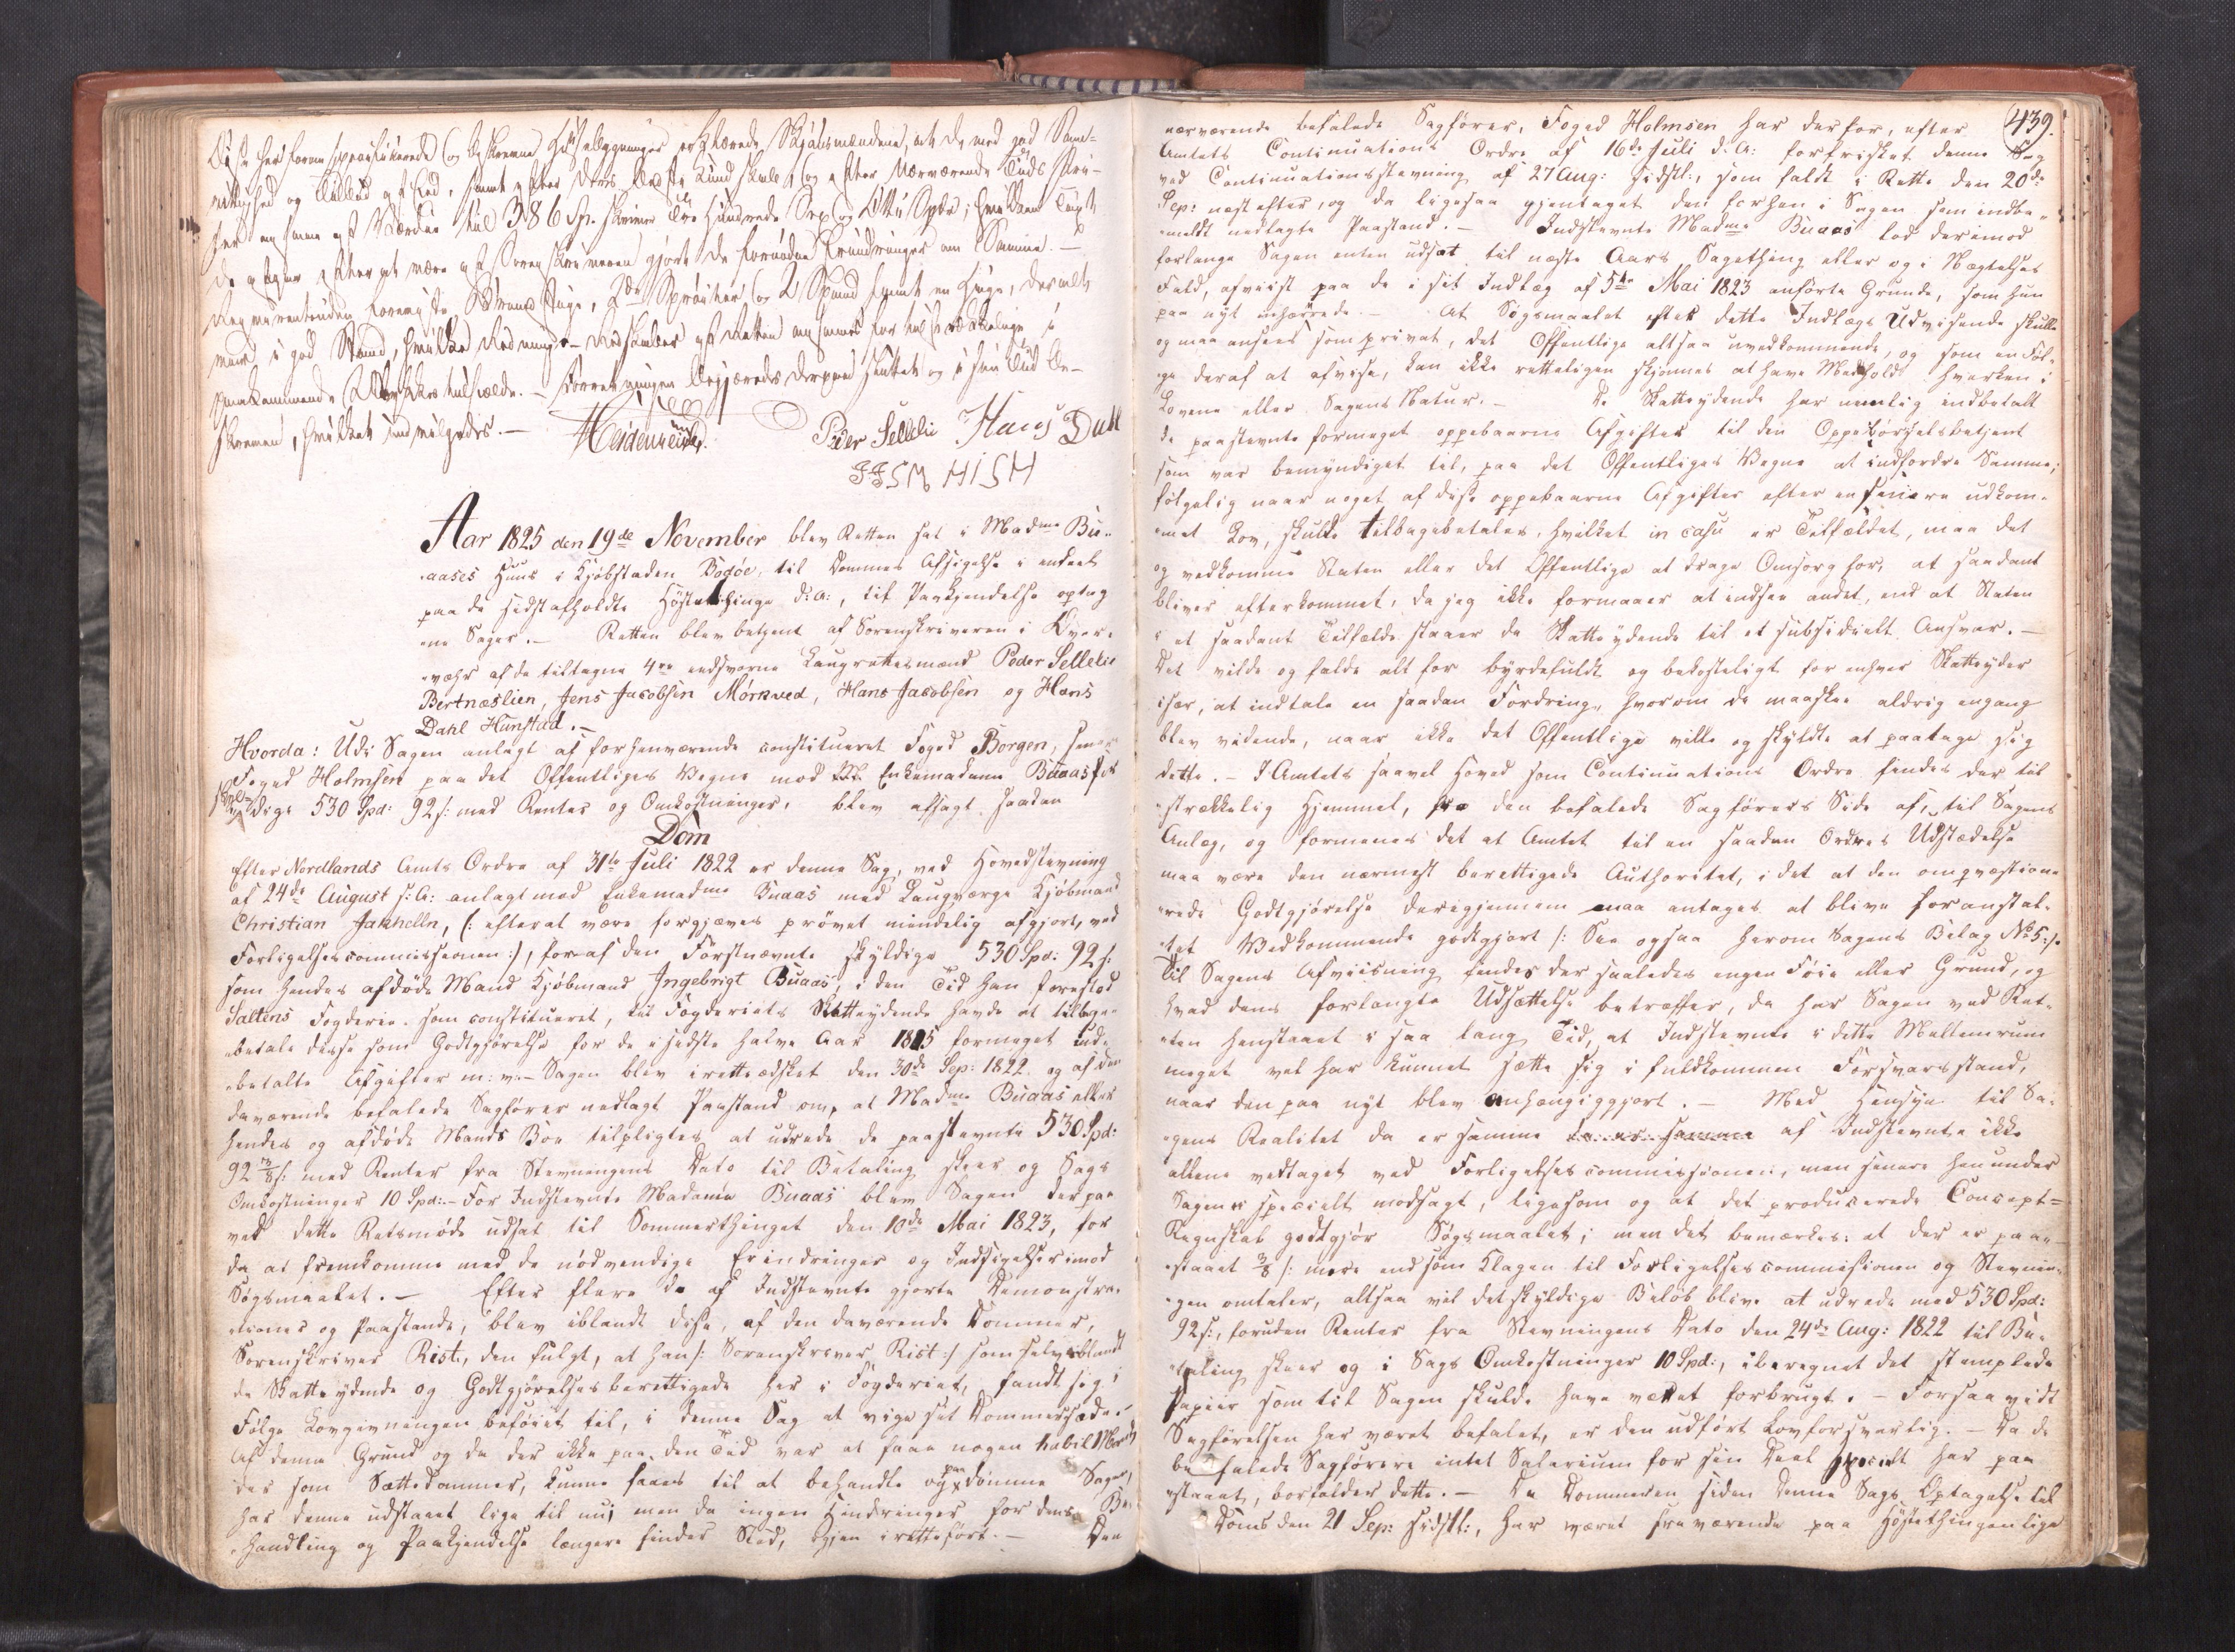 Disse her foran specificerede og beskrevne Huusbygninger erklærede Skjønsmændene, at de med god Sam-
vittighed og Tillid
her ansees af Værdie til 386 Spd. skriver Tre Hundrede Sex og Otti Spdr; hvilken Taxt
de afgav efter at være af Sorenskriveren gjort de fornødne Erindringer om Samme. —
Reqvirentinden foreviste Brandstige, 2de Sprøiter og 2 Spand samt en Hage, der alt
var i god Stand, hvilke Rednings-Redskaber af Retten ansees for tilstrækkelige i
paakommende Ulykkestilfælde. — Forretningen begjæredes derpaa sluttet og i sin Tid be-
skreven, hvilket indvilgedes. —
Heidenreich. Peder Sellelie Hans Dahl
HISH
Aar 1825 den 19de November blev Retten sat i Madme Bu-
aases Huus i Kjøbstaden Bodøe, til Dommes Afsigelse i enkelt
paa de sidstafholdte Høstethinge d: A:, til Paakjendelse optag-
ne Sager. — Retten blev betjent af Sorenskriveren i Over-
værelse af de tiltagne 4re eedsvorne Laugrettesmænd Peder Sellelie
Bertnæslien, Jens Jacobsen Mörkved, Hans Jacobsen og Hans
Dahl Hunstad. —
Hvorda: Udi Sagen anlagt af forhenværende constitueret Foged Borgen, senere
Foged Holmsen paa det Offentliges Vegne mod Enkemadame Buaas for
skyldige 530 Spd: 92 s: med Renter og Omkostninger, blev afsagt saadan
Dom
Efter Nordlands Amts Ordre af 31te Juli 1822 er denne Sag, ved Hovedstævning
af 24de August s: A: anlagt mod Enkemadme Buaas med Laugværge Kjøbmand
Christian Jakhelln, (: efterat være forgjæves prøvet mindelig afgjort, ved
Forligelsescommissionen :), for af den Førstnævnte skyldige 530 Spd: 92 s:
som hendes afdøde Mand Kjøbmand Ingebrigt Buaas, i den Tid han forestod
Saltens Fogderie som constitueret, til Fogderiets Skatteydende havde at tilbage-
betale disse som Godtgjørelse for de i sidste halve Aar 1815 formeget ind-
betalte Afgifter m: v: — Sagen blev iretteædsket den 30de Sep: 1822 og af den
daværende befalede Sagfører nedlagt Paastand om, at Madme Buaas eller
hendes og afdøde Mands Boe tilpligtes at udrede de paastevnte 530 Spd:
92 3/8 s: med Renter fra Stevningens Dato til Betaling skeer og Sags
Omkostninger 10 Spd: — For Indstevnte Madame Buaas blev Sagen derpaa
ved dette Retsmøde udsat til Sommerthinget den 10de Mai 1823, for
da at fremkomme med de nødvendige Erindringer og Indsigelser imod
Søgsmaalet. — Efter flere da af Indstevnte gjorte Demonstra-
tioner og Paastande, blev iblandt disse, af den daværende Dommer,
Sorenskriver Rist, den fulgt, at han /: Sorenskriver Rist :/ som selv iblandt
de Skatteydende og Godtgjørelsesberettigede her i Fogderiet, fandt sig i
Følge Lovgivningen beføiet til, i denne Sag at vige sit Dommersæde. —
Af denne Grund og da der ikke paa den Tid var at faae nogen habil Mand
der som Sættedommer, kunne faaes til at behandle og paadømme Sagen,
har denne udstaaet lige til nu; men da ingen Hindringer for dens Be-
handling og Paakjendelse længere finder Sted, igjen iretteført. — Den
439.
nærværende befalede Sagfører, Foged Holmsen har derfor, efter
Amtets Continuations Ordre af 16de Juli d: A: forfrisket denne Sag
ved Continuationsstevning af 27 Aug: sidstl:, som faldt i Rette den 20de
Sep: næstefter, og da ligesaa gjentaget den forhen i Sagen som indbe-
meldt nedlagte Paastand. — Indstevnte Madme Buaas lod derimod
forlange Sagen enten udsat til næste Aars Sagething eller og i Nægtelses
Fald, afviist paa de i sit Indlæg af 5te Mai 1823 anførte Grunde, som hun
paa nyt inhærerede. — At Søgsmaalet efter dette Indlægs Udvisende skulle
og maa ansees som privat, det Offentlige altsaa uvedkommende, og som en Føl-
ge deraf at afvise, kan ikke retteligen skjønnes at have Medhold hverken i
Lovene eller Sagens Natur. — De Skatteydende har nemlig indbetalt
de paastevnte formeget oppebaarne Afgifter til den Oppebørselsbetjent
som var bemyndiget til, paa det Offentliges Vegne at indfordre Samme;
følgelig naar noget af disse oppebaarne Afgifter efter en senere udkom-
met Lov, skulle tilbagebetales, hvilket in casu er Tilfældet, maa det
og vedkomme Staten eller det Offentlige at drage Omsorg for, at saadant
bliver efterkommet, da jeg ikke formaaer at indsee andet, end at Staten
i et saadant Tilfælde staaer de Skatteydende til et subsidielt Ansvar. —
Det vilde og falde alt for byrdefuldt og bekosteligt for enhver Skatteyder
især, at indtale en saadan Fordring, hvorom de maaskee aldrig engang
blev vidende, naar ikke det Offentlige ville og skyldte at paatage sig
dette. — I Amtets saavel Hoved som Continuations Ordre findes der til-
strækkelig Hjemmel, fra den befalede Sagførers Side af, til Sagens
Anlæg, og formenes det at Amtet til en saadan Ordres Udstædelse
maa være den nærmest berettigede Authoritet, i det at den omqvæstione-
rede Godtgjørelse derigjennem maa antages at blive foranstal-
tet Vedkommende godtgjort /: See ogsaa herom Sagens Bilag No 5 :/.
Til Sagens Afviisning findes der saaledes ingen Føie eller Grund, og
hvad dens forlangte Udsættelse betræffer, da har Sagen ved Ret-
ten henstaaet i saa lang Tid, at Indstevnte i dette Mellemrum
meget vel har kunnet sætte sig i fuldkommen Forsvarsstand,
naar den paa nyt blev anhængiggjort. — Med Hensyn til Sa-
gens Realitet da er samme af Indstevnte ikke
allene vedtaget ved Forligelsescommissionen, men senere hen under
Sagen ei specielt modsagt, ligesom og at det producerede Concept-
Regnskab godtgjør Søgsmaalet; men det bemærkes: at der er paa-
staaet 3/8 s: mere end som Klagen til Forligelsescommissionen og Stevnin-
gen omtaler, altsaa vil det skyldige Beløb blive at udrede med 530 Spd:
92 s:, foruden Renter fra Stevningens Dato den 24de Aug: 1822 til Be-
taling skeer og i Sags Omkostninger 10 Spd:, iberegnet det stemplede
Papier som til Sagen skulde have været forbrugt. — Forsaavidt
Sagførelsen har været befalet, er den udført lovforsvarlig. — Da de
befalede Sagførere intet Salarium for sin Deel specielt har paa-
staaet, bortfalder dette. — Da Dommeren siden denne Sags Optagelse til
Doms den 21 Sep: sidstl:, har været fraværende paa Høstethingen lige